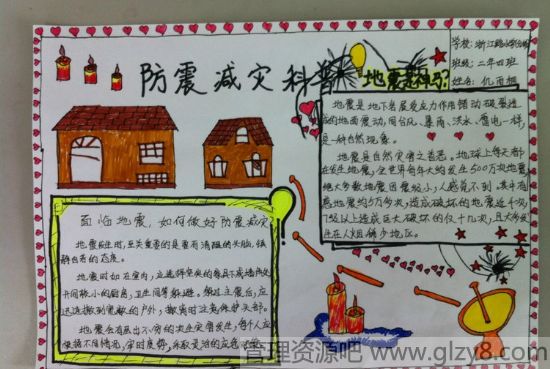 防震减灾科普
学校:
班级:二年四班
姓名:
地震是
地震是地下岩层受应力作用错动破裂造
成的地面震动,同台风、暴雨、洪水、雷电一样,
是一种自然现象。
地震是自然灾害之首恶。地球上每天都
在发生地震,全世界每年大约发生500万次地震,
绝大多数地震因震级小,人感觉不到。其中有
感地震约5万多次,造成破坏的地震近千次,
7级以上造成巨大破坏的仅十几次,且大多发
生在人类稀少地区。
面临地震,如何做好防震减灾
地震发生时,至关重要的是要有清醒的头脑,镇
静自若的态度。
地震时如在室内,应选择坚实的家具下或墙角处
开间较小的厨房,卫生间等躲避。
迅速撤到
地震会有层出不穷的次生灾害发生,每个人应
管理资源吧 www.glzy8.com